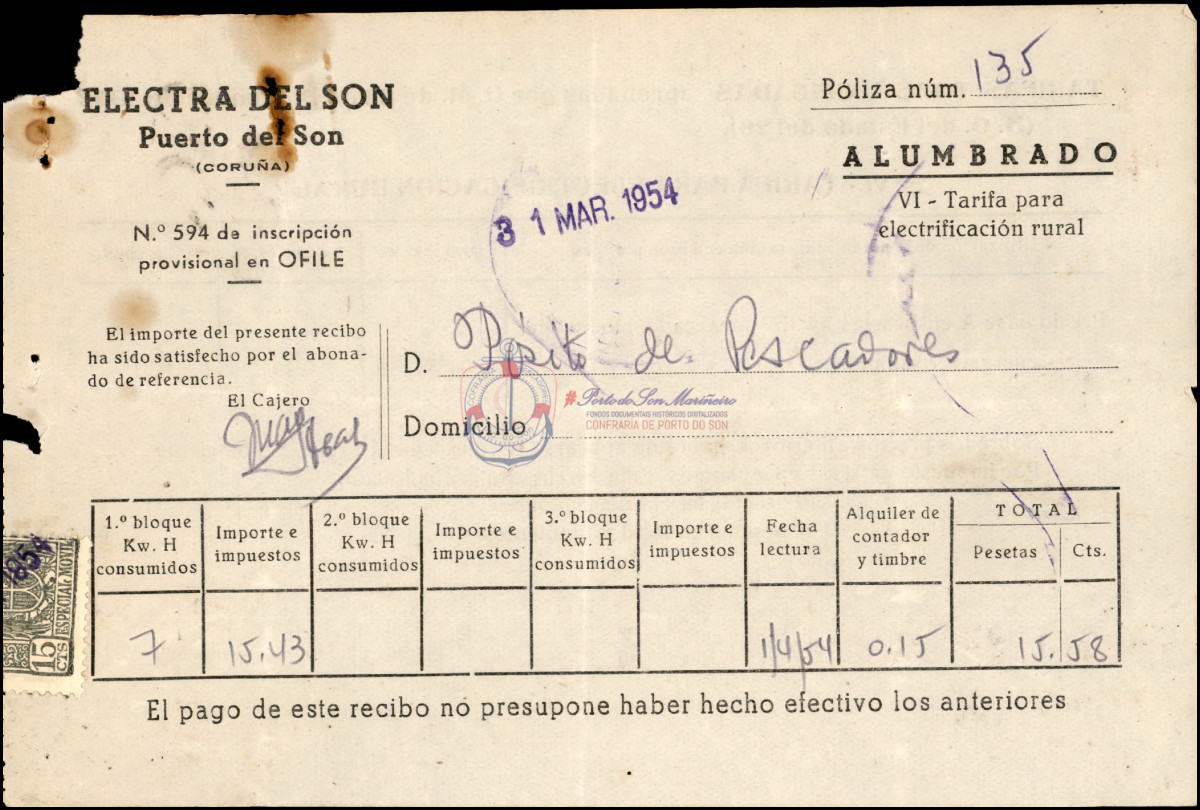 ELECTRA DEL SON
Puerto del Son
(CORUÑA)
N.º 594 de inscripción
provisional en OFILE
Póliza núm. 135
ALUMBRADO
VI - Tarifa para
electrificación rural
31 MAR. 1954
El importe del presente recibo
ha sido satisfecho por el abona-
do de referencia.
El Cajero
D. Pósito de Pescadores
Domicilio
#Porto do Son Mariñeiro
FONDOS DOCUMENTAIS HISTÓRICOS DIGITALIZADOS
CONFRARÍA DE PORTO DO SON
1.º bloque
Kw. H
consumidos
Importe e
impuestos
2.º bloque
Kw. H
consumidos
Importe e
impuestos
3.º bloque
Kw. H
consumidos
Importe e
impuestos
Fecha
lectura
Alquiler de
contador
y timbre
TOTAL
Pesetas
Cts.
7
15.43
1/4/54
0.15
15.58
1954
ESPECIAL MOVIL
15
CTS
El pago de este recibo no presupone haber hecho efectivo los anteriores